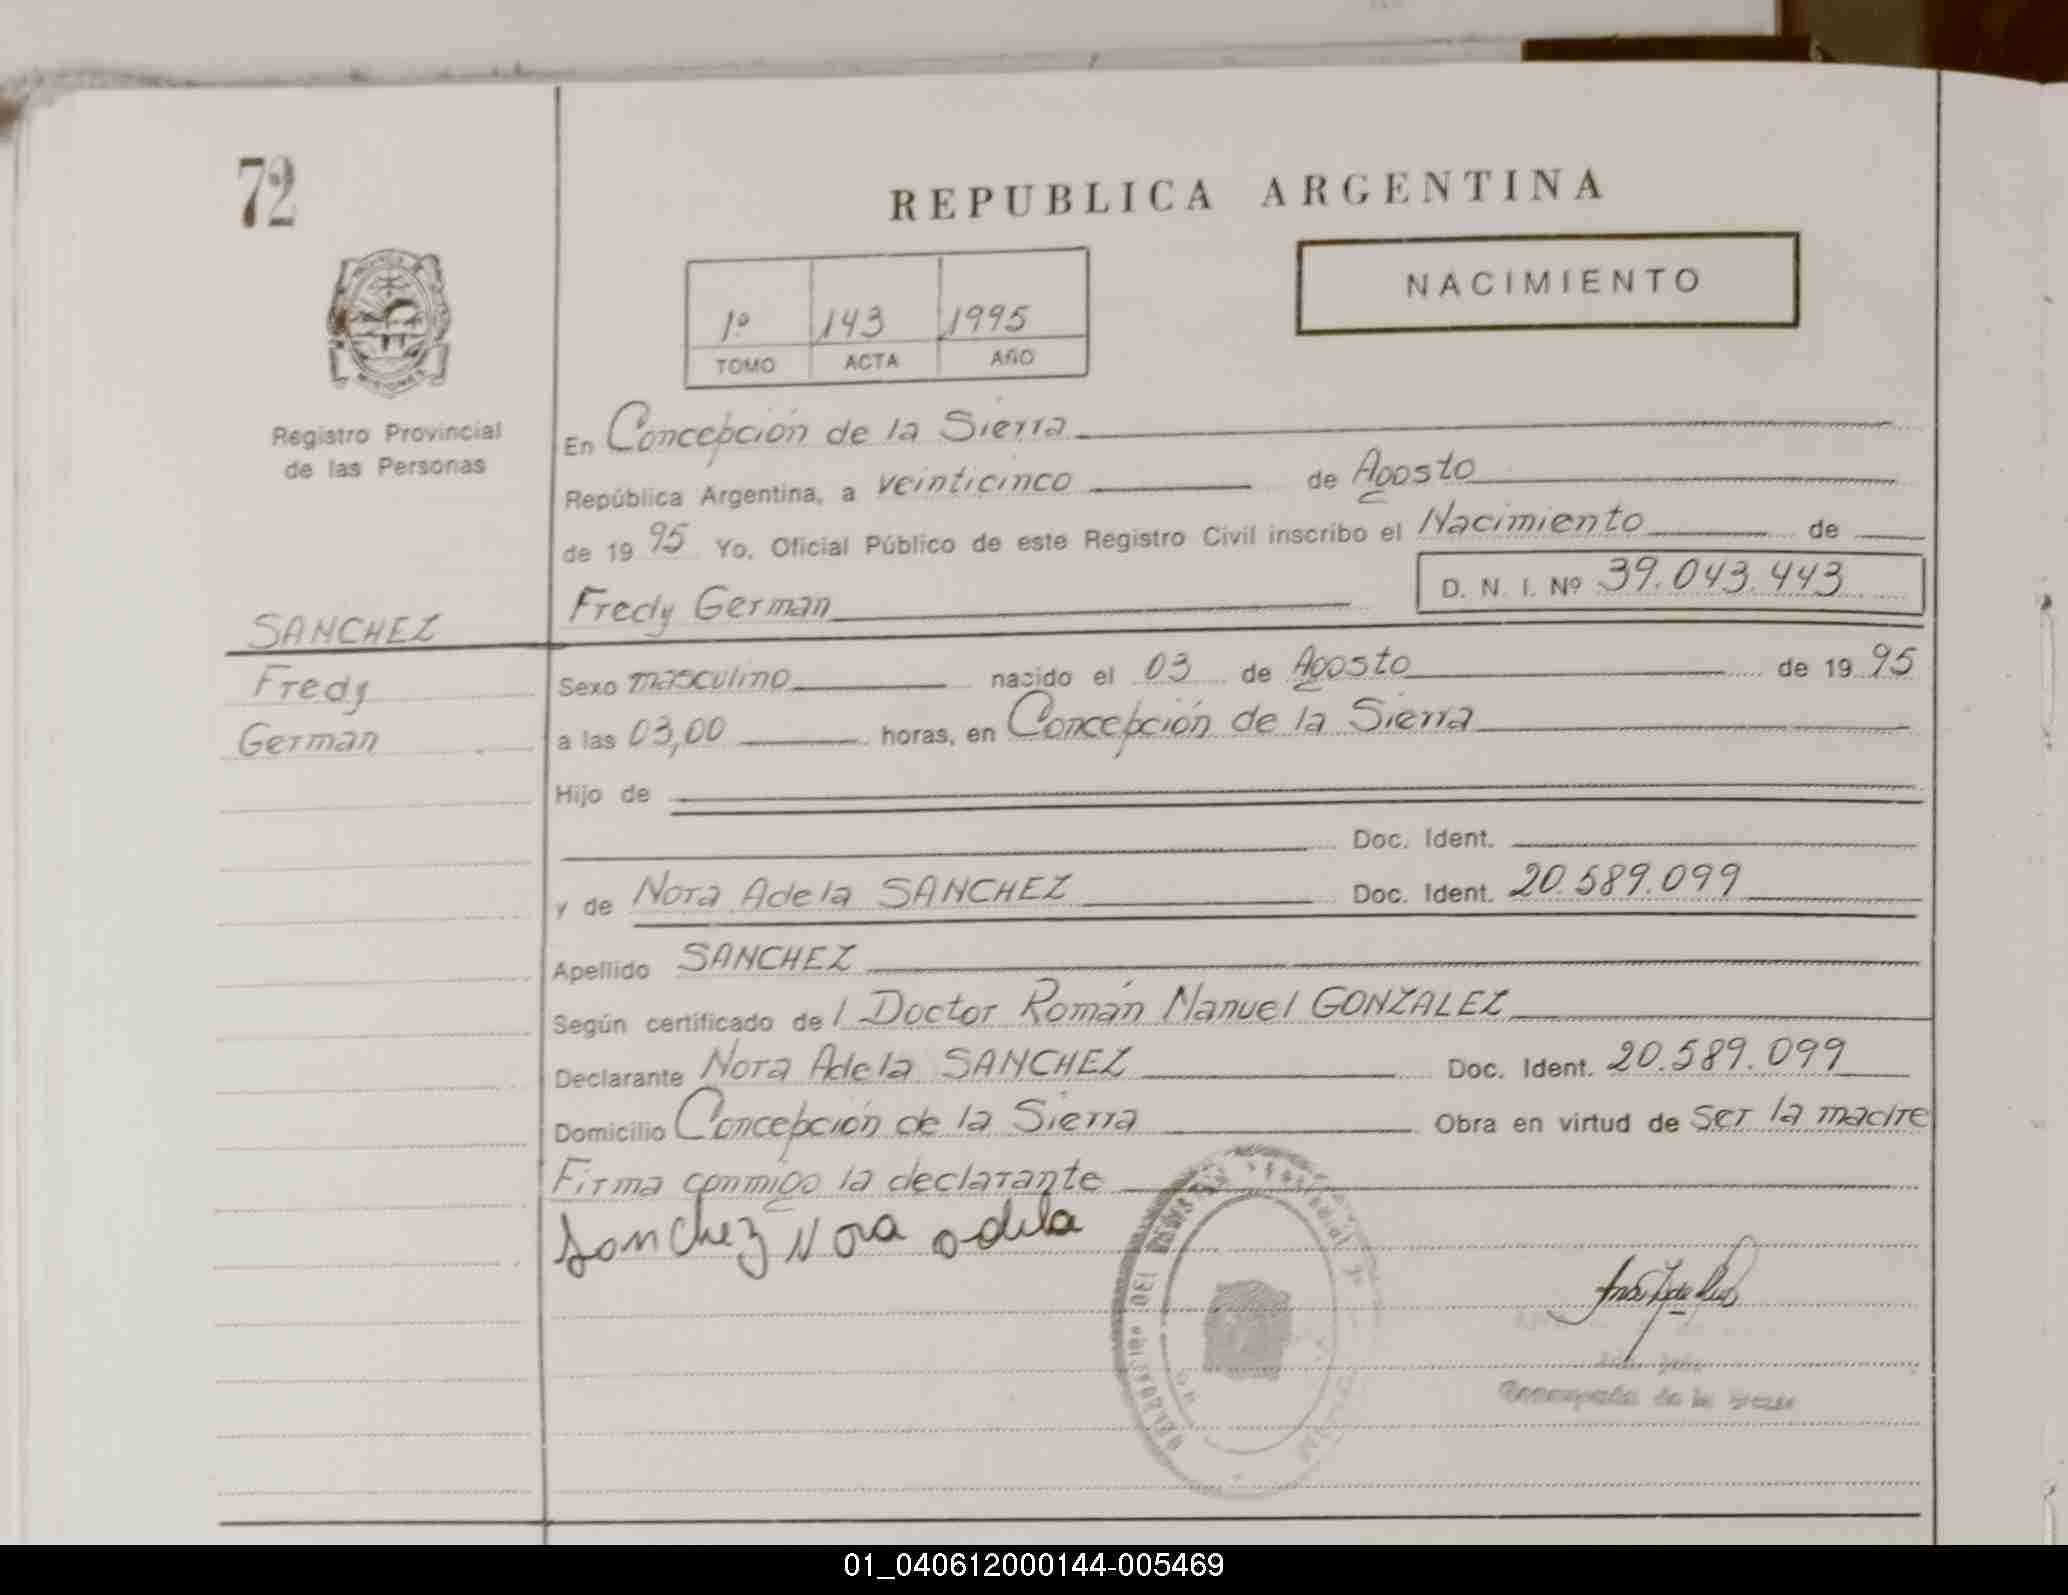 72
REPUBLICA ARGENTINA
NACIMIENTO
1º 143 1995
TOMO ACTA AÑO
Registro Provincial
de las Personas
En Concepción de la Sierra
República Argentina, a veinticinco de Agosto
de 19 95 Yo, Oficial Público de este Registro Civil inscribo el Nacimiento de
D. N. I. Nº 39.043.443
Fredy German
SANCHEZ
Fredy
German
Sexo masculino nacido el 03 de Agosto de 19 95
a las 03,00 horas, en Concepción de la Sierra
Hijo de
Doc. Ident.
y de Nora Adela SANCHEZ Doc. Ident. 20.589.099
Apellido SANCHEZ
Según certificado del Doctor Román Manuel GONZALEZ
Declarante Nora Adela SANCHEZ Doc. Ident. 20.589.099
Domicilio Concepción de la Sierra Obra en virtud de ser la madre
Firma conmigo la declarante
Sanchez Nora adela
de la
01_040612000144-005469